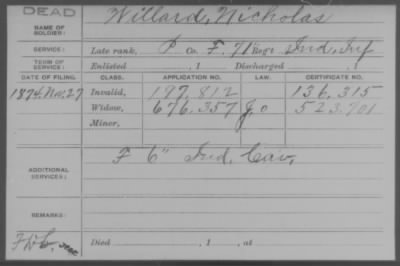 DEAD
NAME OF SOLDIER: Willard, Nicholas
SERVICE: Late rank, P Co. F, 71 Reg't Ind. Inf
TERM OF SERVICE: Enlisted , 1 Discharged , 1
DATE OF FILING CLASS. APPLICATION NO. LAW. CERTIFICATE NO.
1874. Nov. 27 Invalid, 197.812 136.315
Widow, 676.357 523.701
Minor,
ADDITIONAL SERVICES: F 6" Ind. Cav.
REMARKS:
Died , 1 , at